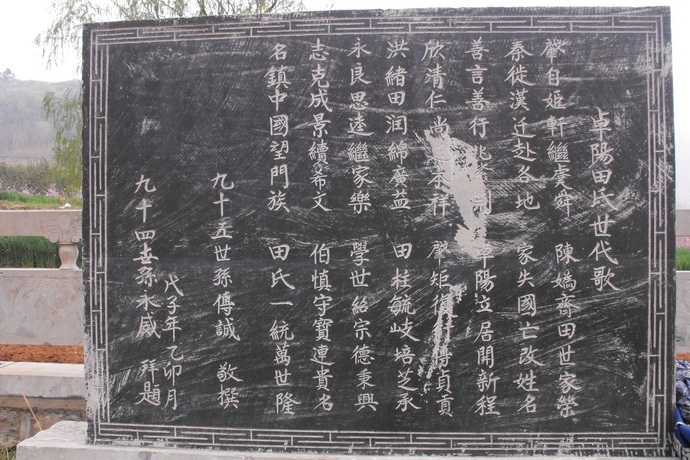 卓陽田氏世代歌
肇自姬軒繼虞舜 陳嬀齊田世家榮
秦徙漢迁赴各地 家失國亡改姓名
善言善行兆 陽立居開新程
欣清仁尚 祥 肇矩復 傳貞貢
洪緒田润綿廣益 田柱毓岐培芝承
永良思遠繼家樂 學世紹宗德秉興
志克成景續希文 伯慎宇寶連貴名
名鎮中國望門族 田氏一統萬世隆
九十五世孫傳誠 敬撰
戊子年乙卯月
九十四世孫永威 拜題